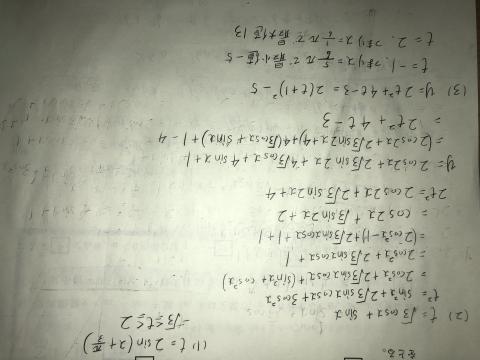 をとる。
(1) t = 2 sin(x + π/3)
-√3 ≦ t ≦ 2
(2) t = √3 cos x + sin x
t² = sin²x + 2√3 sin x cos x + 3cos²x
= 2cos²x + 2√3 sin x cos x + (sin²x + cos²x)
= 2cos²x + 2√3 sin x cos x + 1
= (2cos²x - 1) + 2√3 sin x cos x + 1 + 1
= cos 2x + √3 sin 2x + 2
2t² = 2cos 2x + 2√3 sin 2x + 4
y = 2cos 2x + 2√3 sin 2x + 4√3 cos x + 4 sin x + 1
= (2cos 2x + 2√3 sin 2x + 4) + 4(√3 cos x + sin x) + 1 - 4
= 2t² + 4t - 3
(3) y = 2t² + 4t - 3 = 2(t + 1)² - 5
t = -1. つまり x = 5/6 π で 最小値 - 5
t = 2. つまり x = 1/6 π で 最大値 13